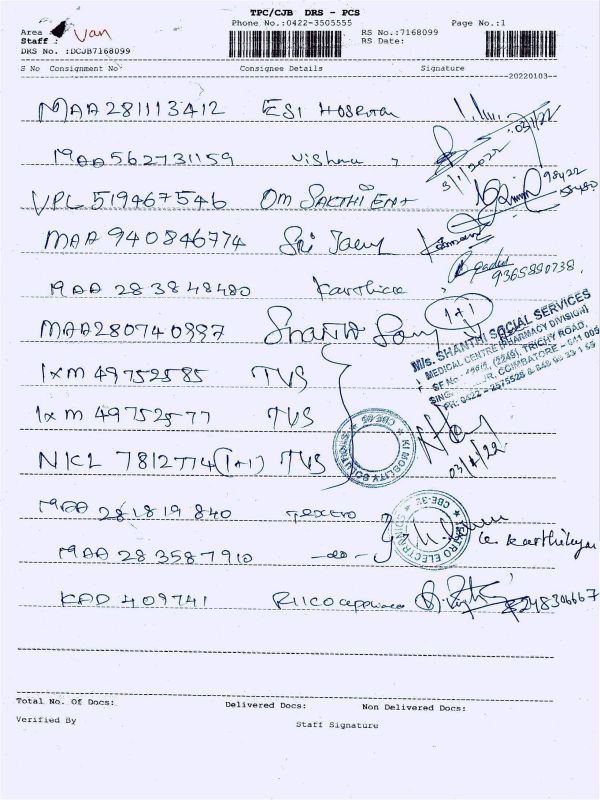 TPC/CJB DRS - PCS
Phone No.:0422-3505555 Page No.:1
Area : Van
Staff :
DRS No. :DCJB7168099
RS No.:7168099
RS Date:
S No Consignment No Consignee Details Signature
20220103
MAA281113412 ESI HOSPITAL 03/1/22
MAA562731159 Vishnu 3/1/2022
VPL519467546 OM SAKTHI ENT 98422
MAA940846774 Sri
MAA 283848480 Karthica 9365890738
MAA280740997 Shanthi 1+1
M/s. SHANTHI SOCIAL SERVICES
MEDICAL CENTRE (PHARMACY DIVISION)
TRICHY ROAD,
COIMBATORE - 641 005
PH: 0422 - 2975528
1xm 49752585 TVS
1xm 49752577 TVS
NICL 7812774 (1+1) TVS
CBE-35
MAA 281819840
CBE-35
MAA 283587910 -do- Karthikeyan
KAD 409741 RIICO appliances 8248306667
Total No. Of Docs: Delivered Docs: Non Delivered Docs:
Verified By Staff Signature